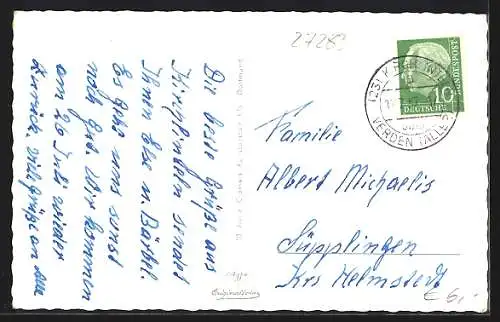 27283
Die beste Grüße aus
Kirchlinteln sendet
Ihnen Else u. Bärbel.
Es geht uns sonst
noch gut. Wir kommen
am 26 Juli wieder
zurück. viele grüße an alle
Familie
Albert Michaelis
Süpplingen
Krs Helmstedt
(23) KIRCHLINTELN
VERDEN (ALLER)
DEUTSCHE BUNDESPOST
10
€ 6,-